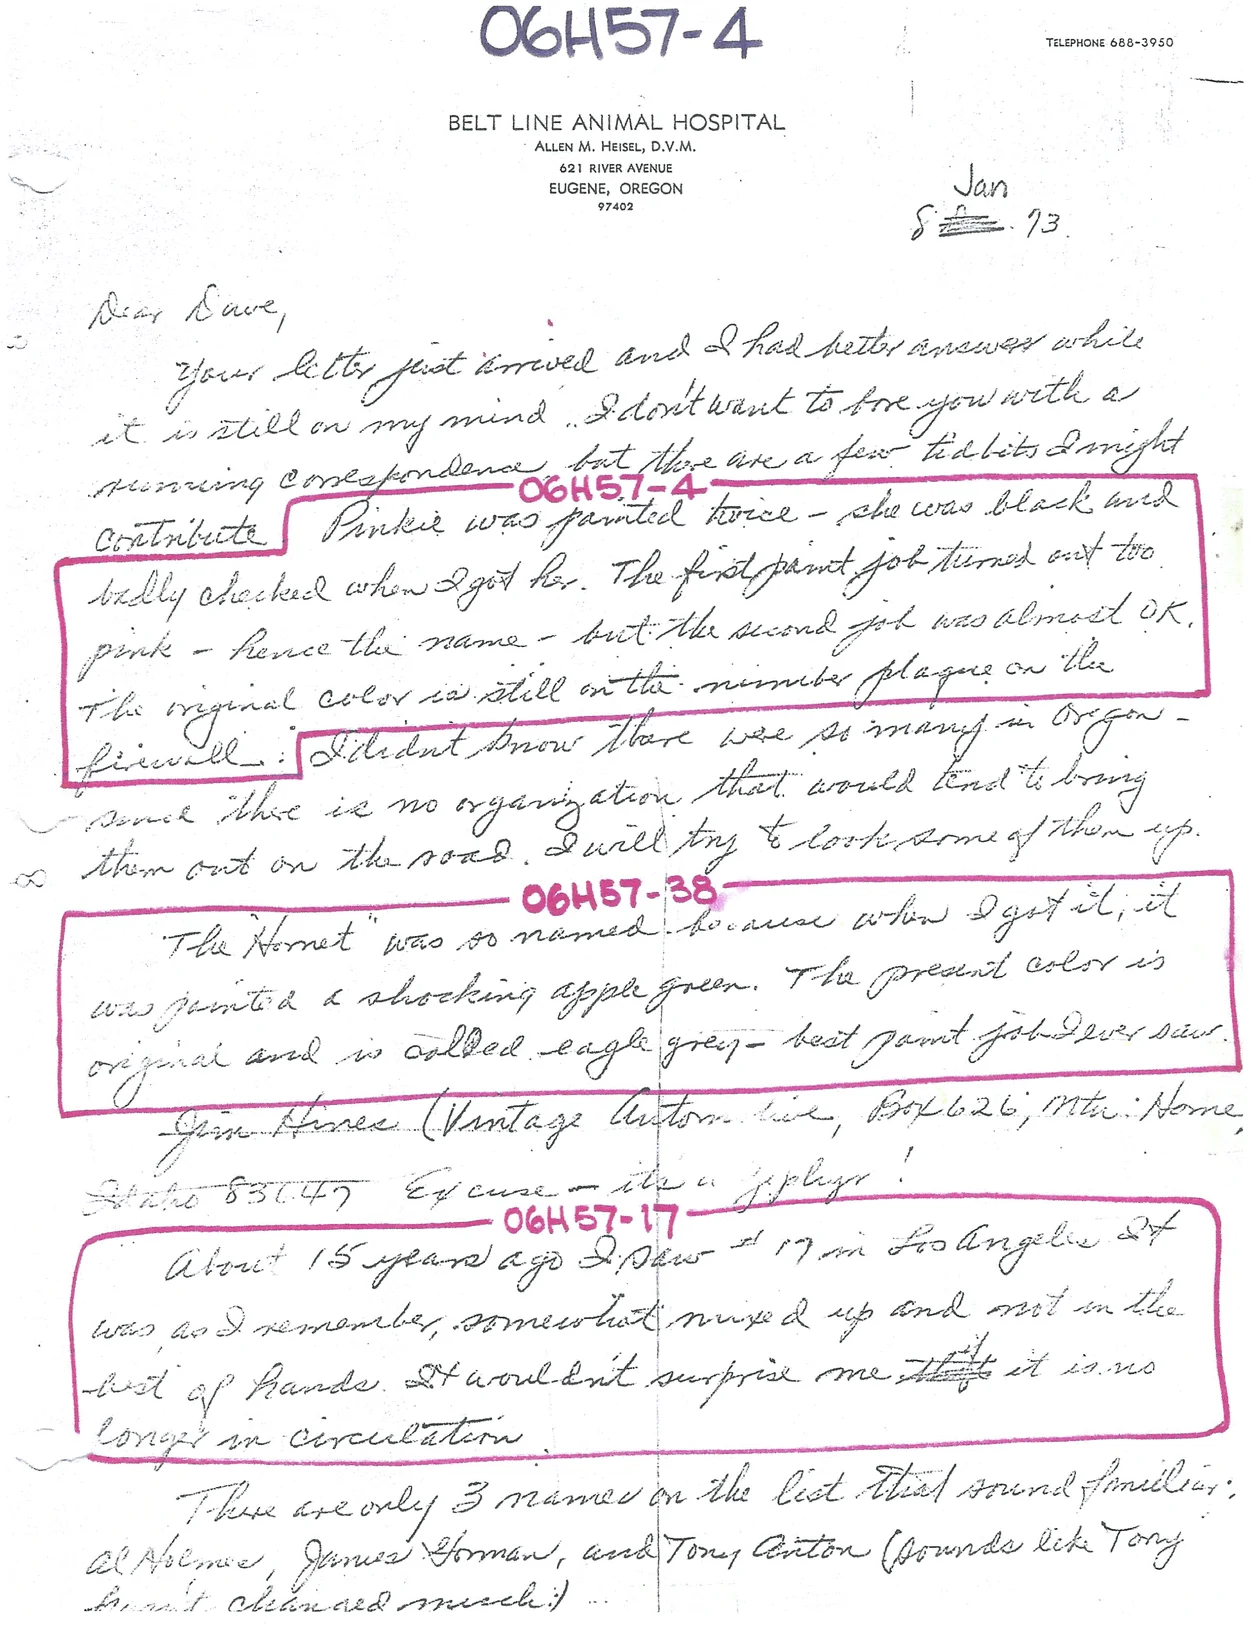 06H57-4
TELEPHONE 688-3950
BELT LINE ANIMAL HOSPITAL
ALLEN M. HEISEL, D.V.M.
621 RIVER AVENUE
EUGENE, OREGON
97402
Jan
8 73.
Dear Dave,
Your letter just arrived and I had better answer while
it is still on my mind. I don't want to bore you with a
running correspondence but there are a few tidbits I might
06H57-4
contribute Pinkie was painted twice - she was black and
badly checked when I got her. The first paint job turned out too
pink - hence the name - but the second job was almost OK.
The original color is still on the number plaque on the
firewall. I didn't know there were so many in Oregon -
since there is no organization that would tend to bring
them out on the road. I will try to look some of them up.
06H57-38
The "Hornet" was so named because when I got it, it
was painted a shocking apple green. The present color is
original and is called eagle grey - best paint job I ever saw.
Jim Hines (Vintage Automotive, Box 626, Mtn. Home,
Idaho 83647 Excuse - it's a Zephyr!
06H57-17
About 15 years ago I saw #17 in Los Angeles It
was, as I remember, somewhat mixed up and not in the
best of hands. It wouldn't surprise me if it is no
longer in circulation.
There are only 3 names on the list that sound familiar:
Al Holmes, James Gorman, and Tony Anton (sounds like Tony
hasn't changed much!) ...